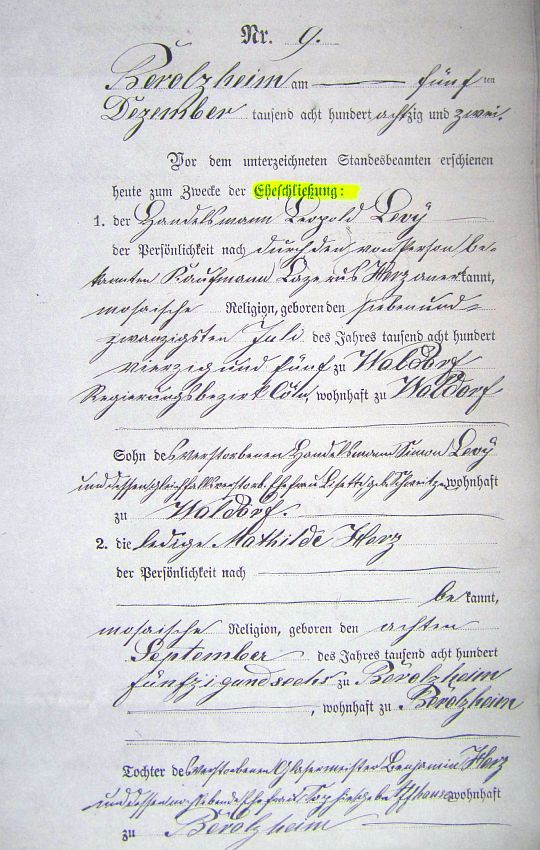 Nr. 9.
Berolzheim am fünf ten
Dezember tausend acht hundert achtzig und zwei.
Vor dem unterzeichneten Standesbeamten erschienen
heute zum Zwecke der Eheschließung:
1. der Handelsmann Leopold Levÿ
der Persönlichkeit nach durch den von Person be-
kannten Kaufmann Lazerus Herz anerkannt,
mosaische Religion, geboren den sieben und-
zwanzigsten Juli des Jahres tausend acht hundert
vierzig und fünf zu Waldorf
Regierungsbezirk Cöln, wohnhaft zu Waldorf
Sohn des verstorbenen Handelsmann Simon Levÿ
und dessen gleichfalls verstorb. Ehefrau Lisette geb. wohnhaft
zu Waldorf.
2. die ledige Mathilde Herz
der Persönlichkeit nach
bekannt,
mosaische Religion, geboren den achten
September des Jahres tausend acht hundert
fünfzig und sechs zu Berolzheim
, wohnhaft zu Berolzheim
Tochter des verstorbenen Glasermeister Benjamin Herz
und dessen noch lebende Ehefrau wohnhaft
zu Berolzheim